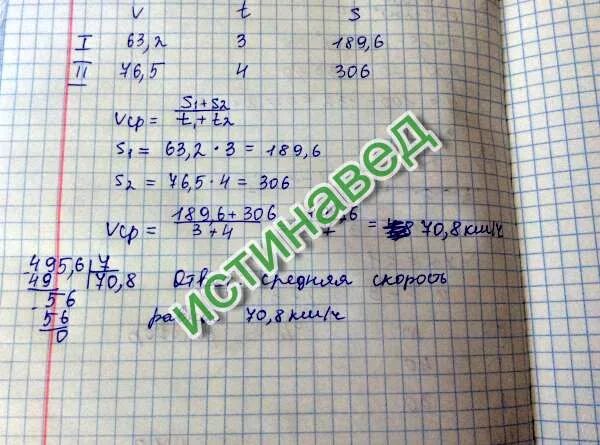 v t s
I 63,2 3 189,6
II 76,5 4 306
vср = s₁+s₂ / t₁+t₂
s₁ = 63,2 · 3 = 189,6
s₂ = 76,5 · 4 = 306
vср = 189,6+306 / 3+4 = 70,8 км/ч
495,6 | 7
49 | 70,8
56
56
0
средняя скорость
70,8 км/ч
истинавед